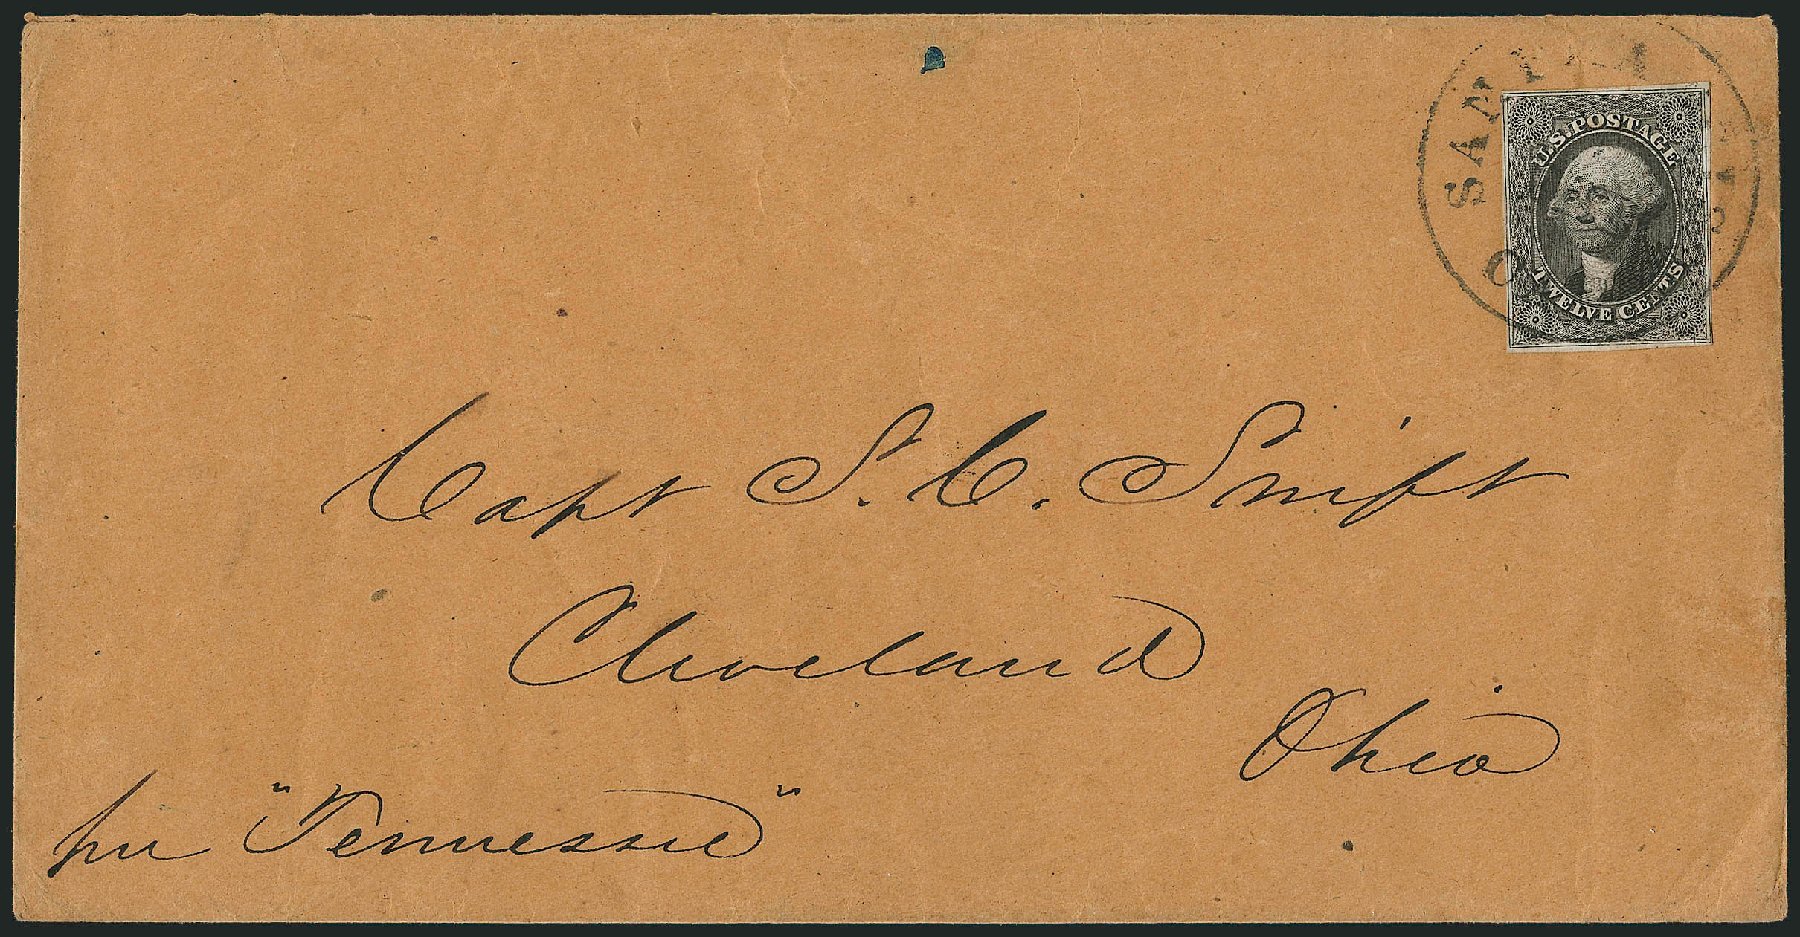 U.S. POSTAGE
TWELVE CENTS
Capt S. C. Swift
Cleveland
Ohio
per "Tennessee"